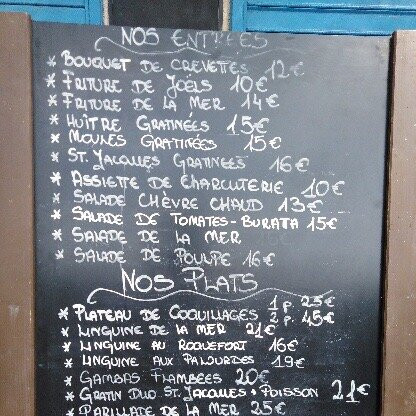 NOS ENTRÉES
* BOUQUET DE CREVETTES 12€
* FRITURE DE JOËLS 10€
* FRITURE DE LA MER 14€
* HUÎTRE GRATINÉES 15€
* MOULES GRATINÉES 15€
* ST. JACQUES GRATINEES 16€
* ASSIETTE DE CHARCUTERIE 10€
* SALADE CHÈVRE CHAUD 13€
* SALADE DE TOMATES-BURATA 15€
* SALADE DE LA MER
* SALADE DE POULPE 16€
NOS PLATS
* PLATEAU DE COQUILLAGES 1 p. 23€
2 p. 45€
* LINGUINE DE LA MER 21€
* LINGUINE AU ROQUEFORT 16€
* LINGUINE AUX PALOURDES 19€
* GAMBAS FLAMBÉES 20€
* GRATIN DUO ST. JACQUES + POISSON 21€
* PARILLADE DE LA MER 25€